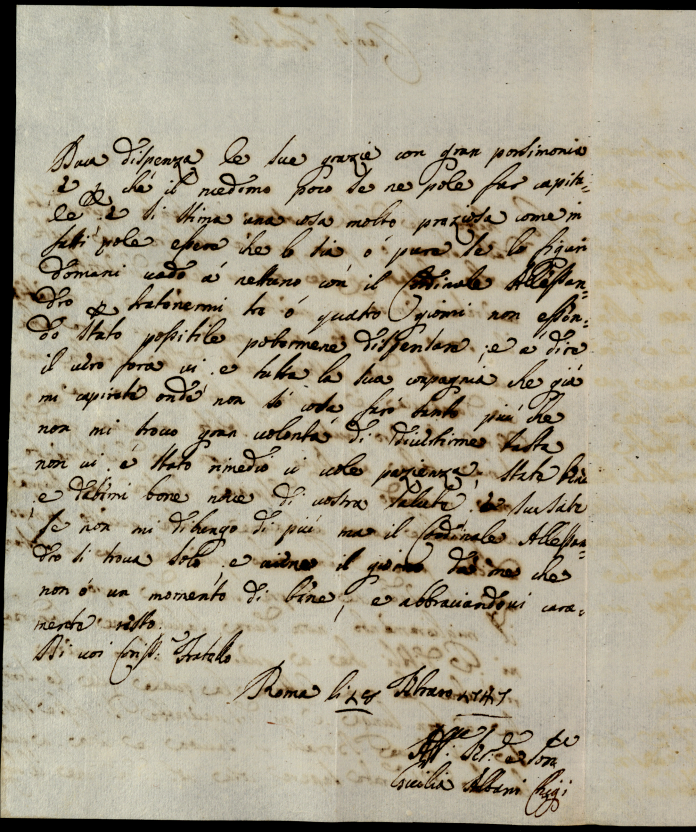 Buca dispenza le sue grazie con gran parsimonia
e p che il medemo poco se ne pole far capita:
le p e si stima una cosa molto praziosa come in
fatti pole essere che lo sia o pure se lo figuri
domani vado a nettuno con il Cardinale Allessan:
dro p tratonermi tre o quatro giorni non essen:
do stato possibile potermene dispensare, e a dire
il vero sora vi e tutta la sua conpagnia che gia
mi capirete onde non so cosa farò tanto più che
non mi trovo gran volontà di divertirme basta
non vi è stato rimedio vi vole pazienza, state bene
e datimi bone nove di vostra salute, e scusate
se non mi dilungo di più ma il Cardinale Allessan:
dro si trova solo, e viene il giorno da me che
non ò un momento di bene, e abbraciandovi cara:
mente resto.
Di voi Cariss: Fratello
Roma li 28 Febraro 1747
Aff: Ser: e Sore
Cecilia Albani Chigi